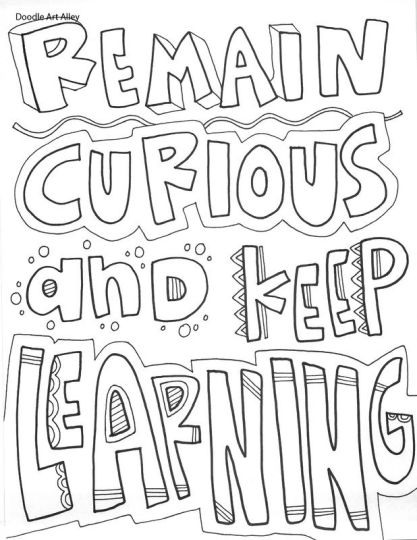 Doodle Art Alley
REMAIN
CURIOUS
and KEEP
LEARNING